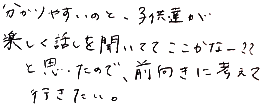 分かりやすいのと、子供達が
楽しく話しを聞いてて ここかなー??
と思ったので、前向きに考えて
行きたい。